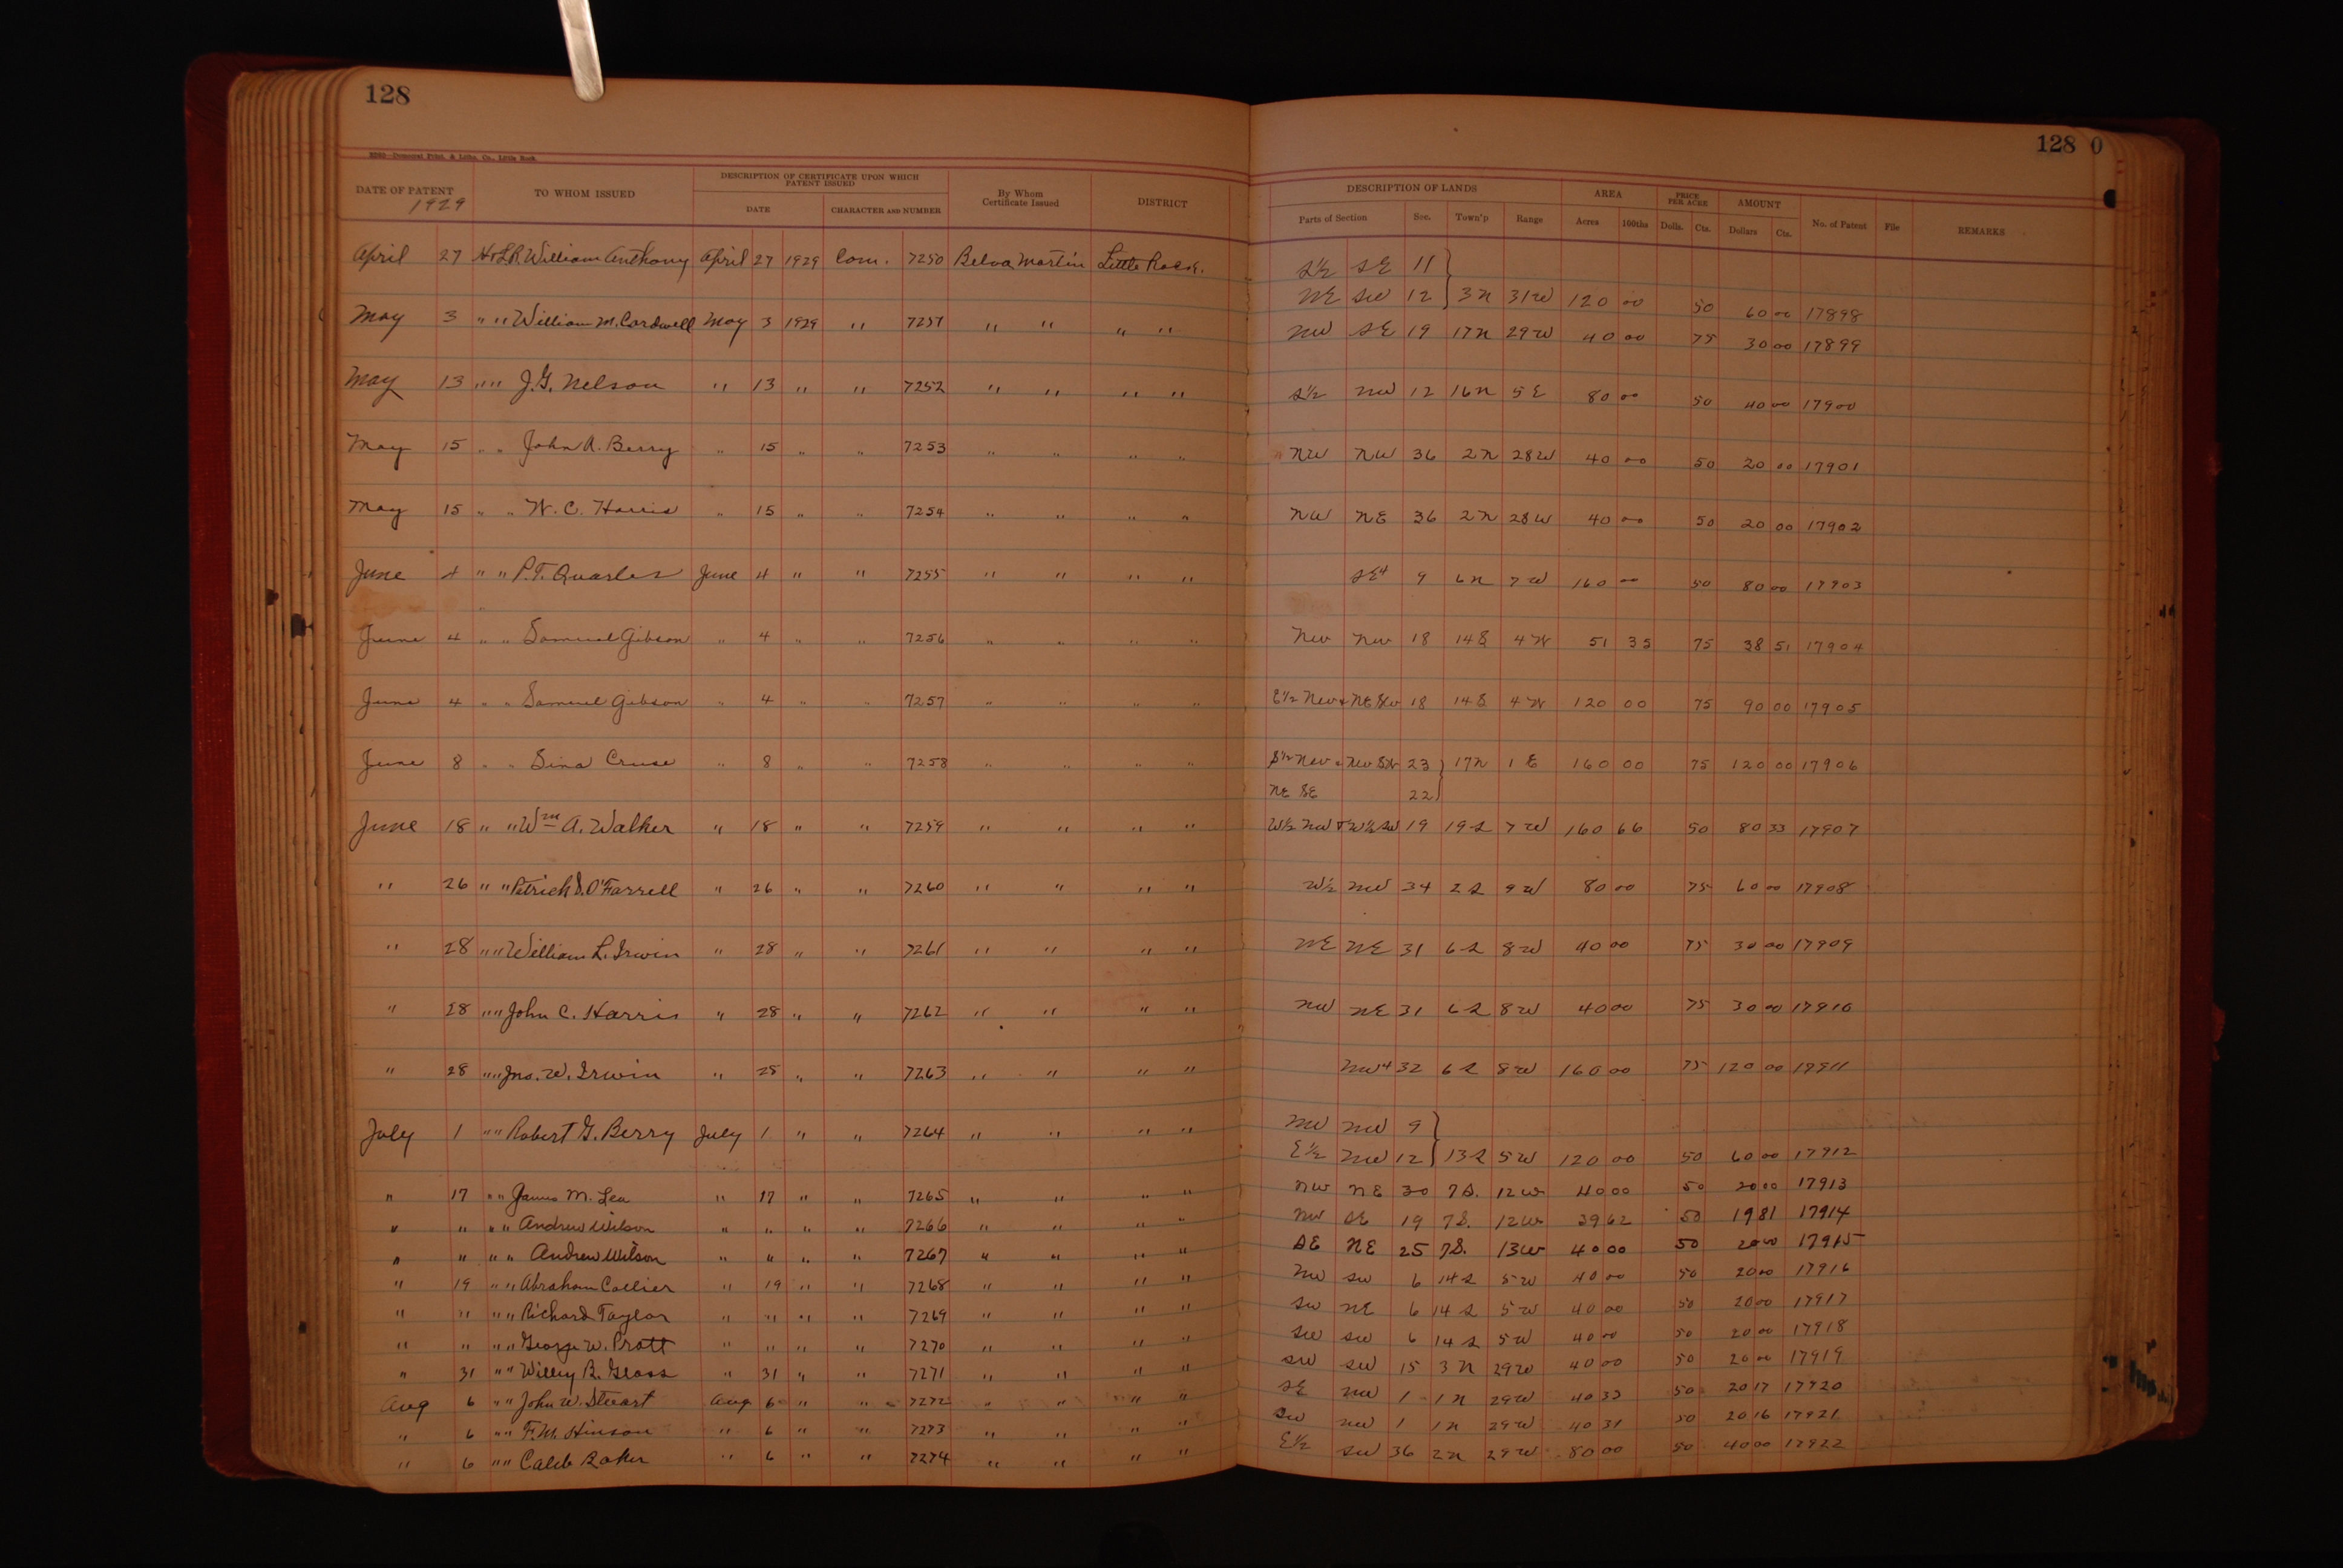 128
128 0
Democrat Print. & Litho. Co., Little Rock
DATE OF PATENT TO WHOM ISSUED DESCRIPTION OF CERTIFICATE UPON WHICH PATENT ISSUED By Whom Certificate Issued DISTRICT DESCRIPTION OF LANDS AREA PRICE PER ACRE AMOUNT No. of Patent File REMARKS
1929 DATE CHARACTER AND NUMBER Parts of Section Sec. Town'p Range Acres 100ths Dolls. Cts. Dollars Cts.
April 27 H+LR. William Anthony April 27 1929 Com. 7250 Belva Martin Little Rock. S½ SE 11 }
NE SW 12 } 3N 31W 120 00 50 60 00 17898
May 3 " " William M. Cardwell May 3 1929 " 7251 " " " " NW SE 19 17N 29W 40 00 75 30 00 17899
May 13 " " J.G. Nelson " 13 " " 7252 " " " " S½ NW 12 16N 5E 80 00 50 40 00 17900
May 15 " " John A. Berry " 15 " " 7253 " " " " NW NW 36 2N 28W 40 00 50 20 00 17901
May 15 " " W. C. Harris " 15 " " 7254 " " " " NW NE 36 2N 28W 40 00 50 20 00 17902
June 4 " " P.T. Quarles June 4 " " 7255 " " " " SE4 9 6N 7W 160 00 50 80 00 17903
June 4 " " Samuel Gibson " 4 " " 7256 " " " " NW NW 18 14S 4W 51 35 75 38 51 17904
June 4 " " Samuel Gibson " 4 " " 7257 " " " " E½ NW + NE SW 18 14S 4W 120 00 75 90 00 17905
June 8 " " Sina Cruse " 8 " " 7258 " " " " S½ NW + NW SW 23 } 17N 1E 160 00 75 120 00 17906
NE SE 22 }
June 18 " " Wm A. Walker " 18 " " 7259 " " " " W½ NW + W½ SW 19 19S 7W 160 66 50 80 33 17907
" 26 " " Patrick S. O'Farrell " 26 " " 7260 " " " " W½ NW 34 2S 9W 80 00 75 60 00 17908
" 28 " " William L. Irwin " 28 " " 7261 " " " " NE NE 31 6S 8W 40 00 75 30 00 17909
" 28 " " John C. Harris " 28 " " 7262 " " " " NW NE 31 6S 8W 40 00 75 30 00 17910
" 28 " " Jno. W. Irwin " 28 " " 7263 " " " " NW4 32 6S 8W 160 00 75 120 00 17911
July 1 " " Robert G. Berry July 1 " " 7264 " " " " NW NW 9 }
E½ NW 12 } 13S 5W 120 00 50 60 00 17912
" 17 " " James M. Lea " 17 " " 7265 " " " " NW NE 30 7S. 12W 40 00 50 20 00 17913
" " " " Andrew Wilson " " " " 7266 " " " " NW SE 19 7S. 12W 39 62 50 19 81 17914
" " " " Andrew Wilson " " " " 7267 " " " " SE NE 25 7S. 13W 40 00 50 20 00 17915
" 19 " " Abraham Collier " 19 " " 7268 " " " " NW SW 6 14S 5W 40 00 50 20 00 17916
" " " " Richard Taylor " " " " 7269 " " " " SW NE 6 14S 5W 40 00 50 20 00 17917
" " " " George W. Pratt " " " " 7270 " " " " SW SW 6 14S 5W 40 00 50 20 00 17918
" 31 " " Willey R. Glass " 31 " " 7271 " " " " SW SW 15 3N 29W 40 00 50 20 00 17919
Aug 6 " " John W. Stewart Aug 6 " " 7272 " " " " SE NW 1 1N 29W 40 33 50 20 17 17920
" 6 " " F.M. Hinson " 6 " " 7273 " " " " SW NW 1 1N 29W 40 31 50 20 16 17921
" 6 " " Caleb Baker " 6 " " 7274 " " " " E½ SW 36 2N 29W 80 00 50 40 00 17922